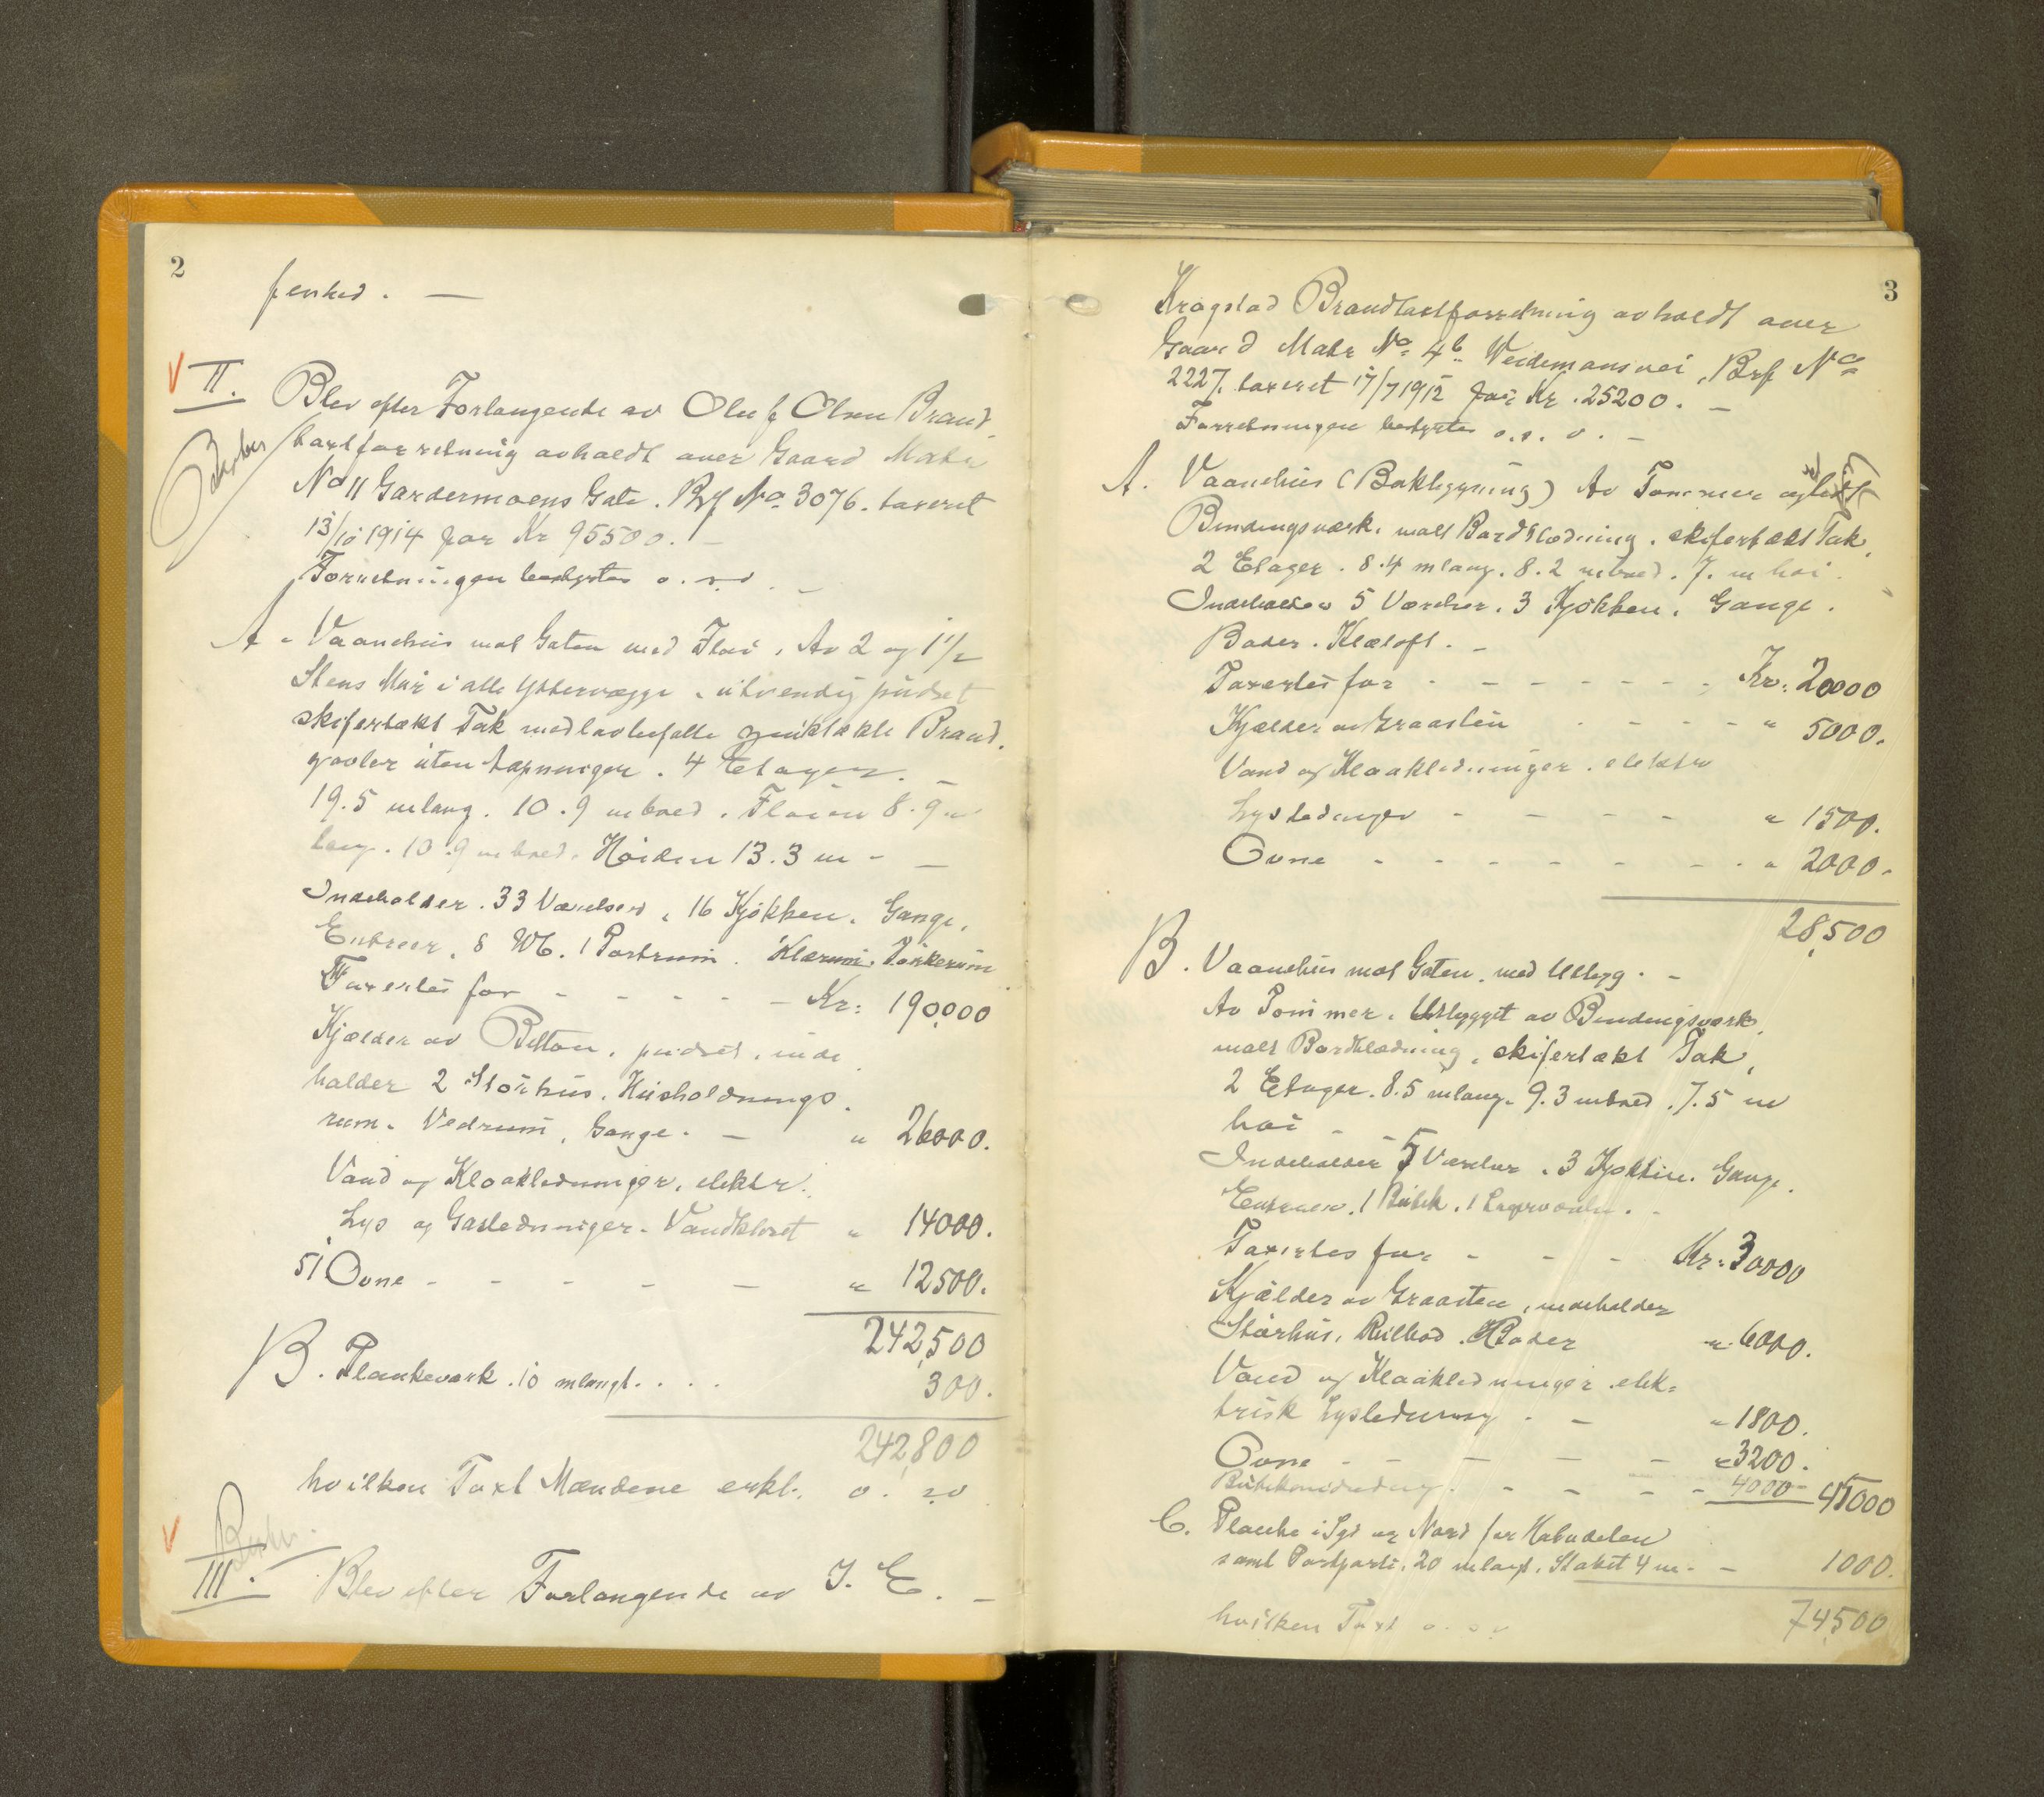 2
fenhed. —
II. Blev efter Forlangende av Oluf Olsen Brand-
taxtforretning avholdt over Gaard Matr
No 11 Gardermoens Gate. Brf No 3076. taxeret
13/10 1914 for Kr 95500. —
Forretningen bestyrtes o. s. v. —
A. Vaanehus mot Gaten med Fløi. Av 2 og 1 1/2
Stens Mur i alle Ydtervægge, utvendig pudset
skifertækt Tak med lovbefalte zinktækte Brand-
gavler uten tapninger. 4 Etager. —
19.5 m lang. 10.9 m bred. Fløien 8.9 m
lang. 10.9 m bred. Høiden 13.3 m — —
Indeholder. 33 Værelser, 16 Kjøkken, Gange,
Entreer, 8 WC. 1 Portrum. Klærum. Tørkerum
Taxertes for - - - - - Kr: 190000
Kjælder av Betton, pudset, inde
holder 2 Storhus. Husholdnings-
rum. Vedrum, Gange. — " 26000.
Vand og Kloakledninger, elektr.
Lys og Gasledninger. Vandkloset " 14000.
51 Ovne - - - - — " 12500.
242,500
B. Plankeverk. 10 m langt. . . . 300.
242,800
hvilken Taxt Mændene erkl. o. s. v
III. Blev efter Forlangende av J. E. —
3
Krogstad Brandtaxtforretning avholdt over
Gaard Matr No 4b Weidemansvei, Brf No
2227. taxeret 17/7 1912 for Kr. 25200. —
Forretningen bestyrtes o. s. v. —
A. Vaanehus (Bakbygning) Av Tømmer og
Bindingsverk. malt Bordklædning, skifertækt Tak,
2 Etager. 8.4 m lang. 8.2 m bred. 7. m høi.
Indeholder 5 Værelser, 3 Kjøkken, Gange.
Boder. Klæloft. —
Taxertes for - - - - - - - Kr: 20000
Kjælder av Graasten . - - - - " 5000.
Vand og Kloakledninger. elektr
Lysledninger - - - - " 1500.
Ovne - - - - - - - " 2000.
28,500
B. Vaanehus mot Gaten, med Utbyg. —
Av Tømmer. Utbygget av Bindingsverk,
malt Bordklædning, skifertækt Tak,
2 Etager. 8.5 m lang. 9.3 m bred. 7.5 m
høi - -
Indeholder 5 Værelser, 3 Kjøkken. Gange.
Entreer, 1 Butik, 1 Lagerværelse. -
Taxertes for - - - Kr: 30000
Kjælder av Graasten, indeholder
Storhus, Rulbod. Boder " 6000.
Vand og Kloakledninger elek-
trisk Lysledning . — " 1800.
Ovne - - — — - " 3200.
Butikinredning. - - - - 4000 - 45000
C. Planke i Syd og Nord for
samt Portparti, 20 m langt. Staket 4 m. — 1000.
74,500
hvilken Taxt o. s. v